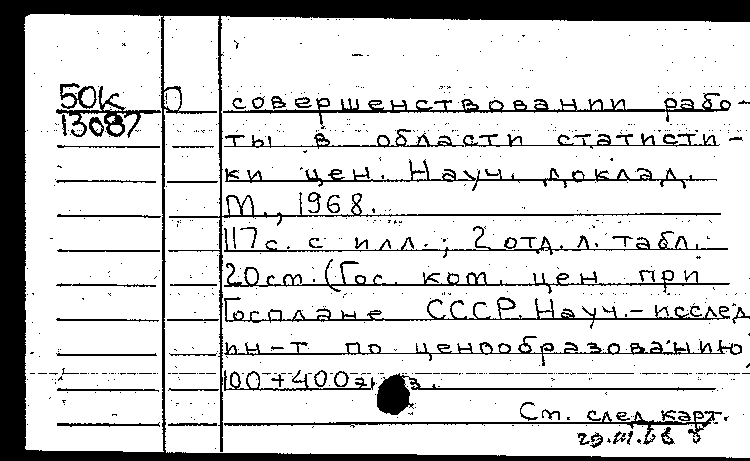 50к О совершенствовании рабо-
13087 ты в области статисти-
ки цен. Науч. доклад.
М., 1968.
117 с. с илл.; 2 отд. л. табл.
20 см. (Гос. ком. цен при
Госплане СССР. Науч.-исслед
ин-т по ценообразованию)
100+400 экз.
См. след карт.
29.III.68